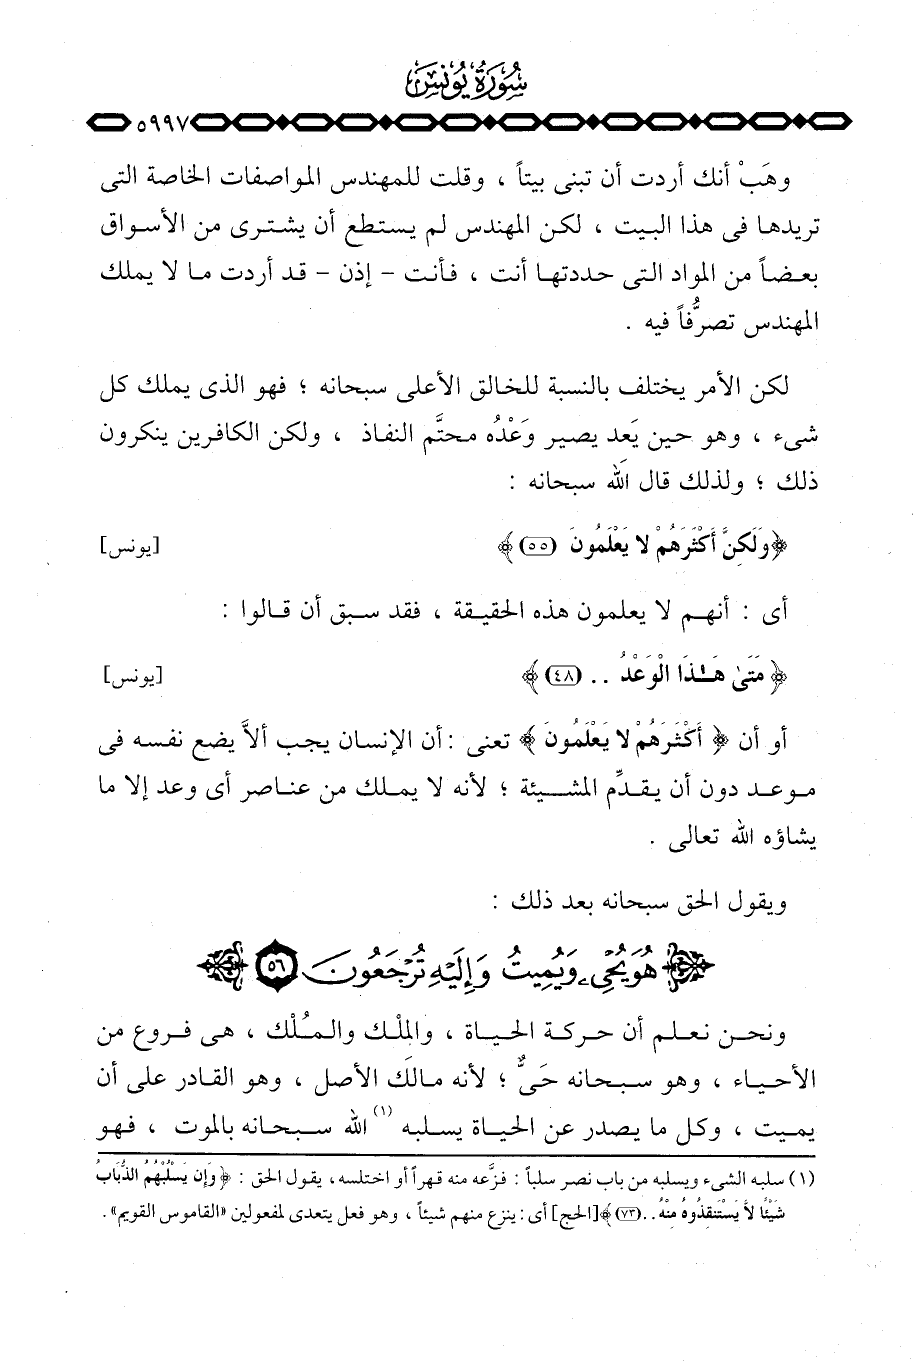 سُورَةُ يُونُسَ
٥٩٩٧
وهَبْ أنك أردت أن تبنى بيتاً ، وقلت للمهندس المواصفات الخاصة التى
تريدها فى هذا البيت ، لكن المهندس لم يستطع أن يشترى من الأسواق
بعضاً من المواد التى حددتها أنت ، فأنت – إذن – قد أردت ما لا يملك
المهندس تصرُّفاً فيه .
لكن الأمر يختلف بالنسبة للخالق الأعلى سبحانه ؛ فهو الذى يملك كل
شىء ، وهو حين يَعد يصير وَعْدُه محتَّم النفاذ ، ولكن الكافرين ينكرون
ذلك ؛ ولذلك قال الله سبحانه :
﴿وَلَكِنَّ أَكْثَرَهُمْ لا يَعْلَمُونَ (٥٥)﴾ [يونس]
أى : أنهم لا يعلمون هذه الحقيقة ، فقد سبق أن قالوا :
﴿مَتَىٰ هَـٰذَا الْوَعْدُ .. (٤٨)﴾ [يونس]
أو أن ﴿ أَكْثَرَهُمْ لا يَعْلَمُونَ ﴾ تعنى : أن الإنسان يجب ألاَّ يضع نفسه فى
موعد دون أن يقدِّم المشيئة ؛ لأنه لا يملك من عناصر أى وعد إلا ما
يشاؤه الله تعالى .
ويقول الحق سبحانه بعد ذلك :
هُوَ يُحْىِۦ وَيُمِيتُ وَإِلَيْهِ تُرْجَعُونَ ٥٦
ونحن نعلم أن حركة الحياة ، والمِلْك والمُلْك ، هى فروع من
الأحياء ، وهو سبحانه حَىٌّ ؛ لأنه مالك الأصل ، وهو القادر على أن
يميت ، وكل ما يصدر عن الحياة يسلبه (١) الله سبحانه بالموت ، فهو
(١) سلبه الشىء ويسلبه من باب نصر سلباً : فزَّعه منه قهراً أو اختلسه ، يقول الحق : ﴿وَإِن يَسْلُبْهُمُ الذُّبَابُ
شَيْئًا لاَّ يَسْتَنقِذُوهُ مِنْهُ ..(٧٣)﴾ [الحج] أى : ينزع منهم شيئاً ، وهو فعل يتعدى لمفعولين «القاموس القويم» .